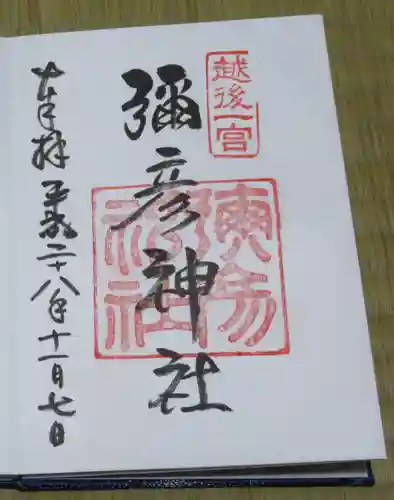 越後一宮
彌彦神社
奉拝 平成二十八年十一月七日